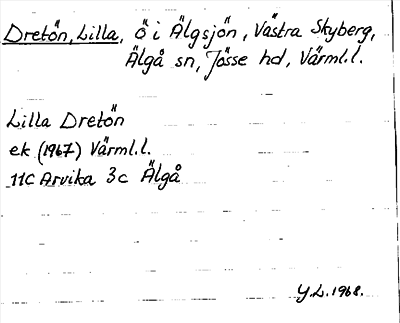 Dretön, Lilla, ö i Älgsjön, Västra Skyberg,
Älgå sn, Jösse hd, Värml.l.
Lilla Dretön
ek (1967) Värml.l.
11C Arvika 3c Älgå
Y.L. 1968.